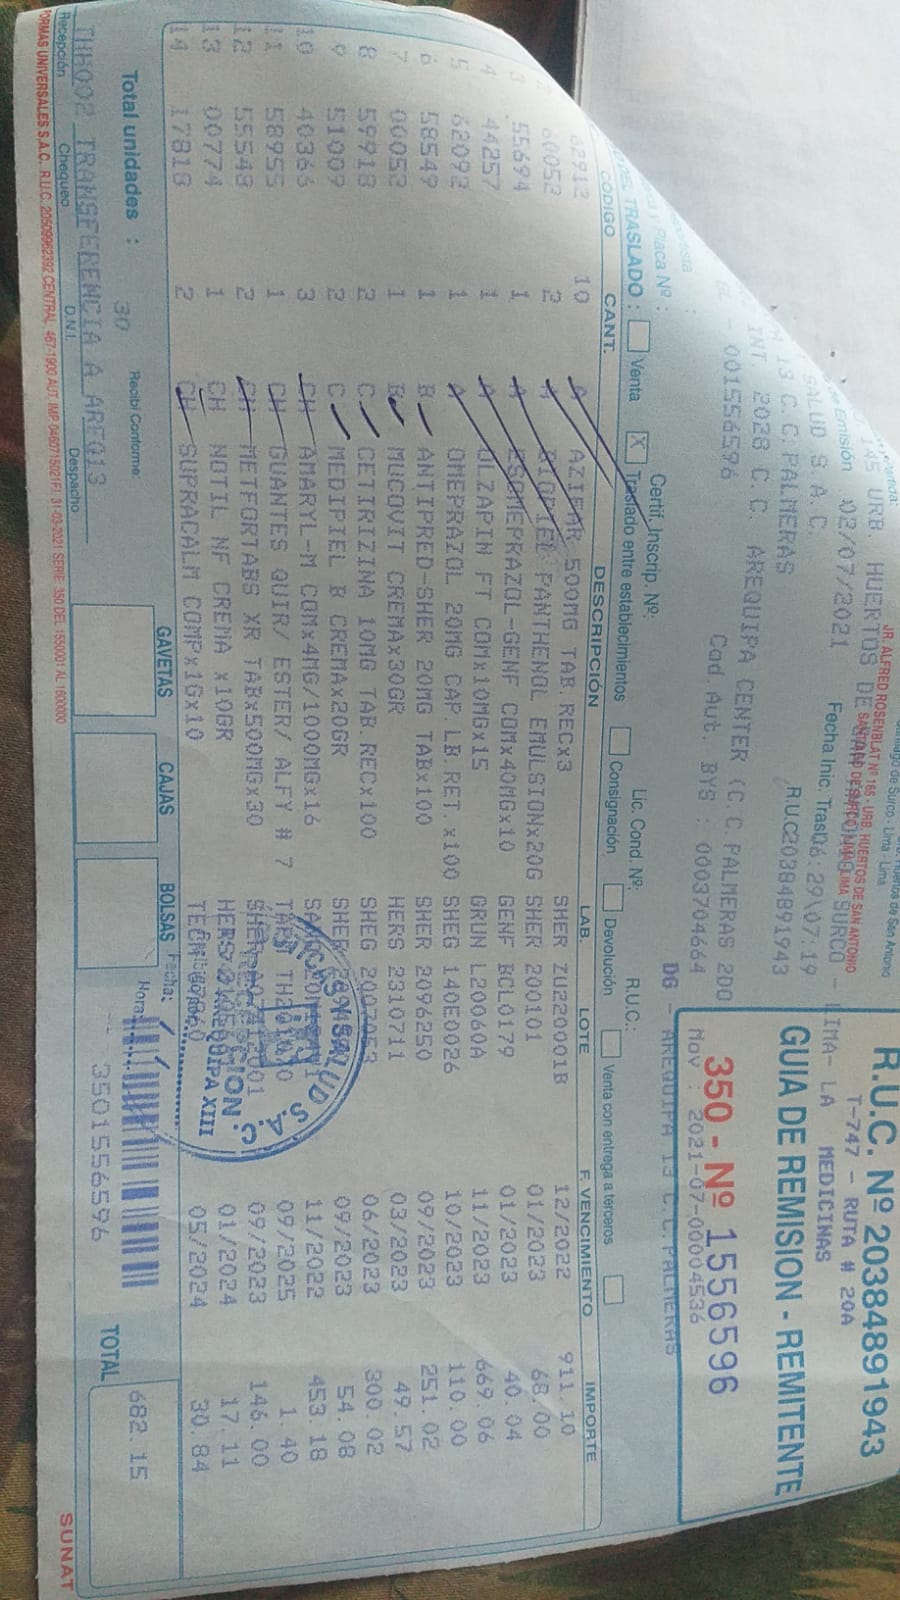 R.U.C. Nº 20384891943
T-747 - RUTA # 20A
MEDICINAS
GUIA DE REMISION - REMITENTE
350 - Nº 1556596
Mov : 2021-07-00004536
JR. ALFRED ROSENBLAT Nº 165 - URB. HUERTOS DE SAN ANTONIO
145 URB. HUERTOS DE
LIMA- LA
02/07/2021
Fecha Inic. Tras 06.29\07:19
SALUD S.A.C.
R.U.C 20384891943
13 C.C.PALMERAS
INT. 202B C.C. AREQUIPA CENTER (C.C PALMERAS 2DO
- 001556596
Cod Aut. BYS : 0003704664
DG - AREQUIPA 13 C.C.PALMERAS
Placa Nº :
Certif. Inscrip. Nº:
Lic. Cond. Nº:
R.U.C.:
TRASLADO :
Venta
X
Traslado entre establecimientos
Consignación
Devolución
Venta con entrega a terceros
CÓDIGO CANT. DESCRIPCIÓN LAB. LOTE F. VENCIMIENTO IMPORTE
62912 10 A AZIFAR 500MG TAB.RECx3 SHER ZU220001B 12/2022 911.10
60052 2 A PANTHENOL EMULSIONx20G SHER 200101 01/2023 68.00
3 55694 1 A ESOMEPRAZOL-GENF COMx40MGx10 GENF BCL0179 01/2023 40.04
4 44257 1 A OLZAPIN FT COMx10MGx15 GRUN L20060A 11/2023 669.06
5 62092 1 A OMEPRAZOL 20MG CAP.LB.RET.x100 SHEG 140E0026 10/2023 110.00
6 58549 1 B ANTIPRED-SHER 20MG TABx100 SHER 2096250 09/2023 251.02
7 00052 1 B MUCOVIT CREMAx30GR HERS 2310711 03/2023 49.57
8 59918 2 C CETIRIZINA 10MG TAB.RECx100 SHEG 2007053 06/2023 300.02
9 51009 2 C MEDIPIEL B CREMAx20GR SHER 09/2023 54.08
10 40366 3 CH AMARYL-M COMx4MG/1000MGx16 11/2022 453.18
11 58955 1 CH GUANTES QUIR/ ESTER/ ALFY # 7 09/2025 1.40
12 55548 2 CH METFORTABS XR TABx500MGx30 09/2023 146.00
13 00774 1 CH NOTIL NF CREMA x10GR HERS 01/2024 17.11
14 17818 2 CH SUPRACALM COMPx1Gx10 05/2024 30.84
SALUD S.A.C.
AREQUIPA XIII
Total unidades : 30
Recibí Conforme:
GAVETAS
CAJAS
BOLSAS
Fecha:
Hora:
3501556596
TOTAL 682.15
THH002 TRANSFERENCIA A AREQ13
Recepción
Chequeo
D.N.I.
Despacho
FORMAS UNIVERSALES S.A.C. R.U.C. 20509962392 CENTRAL: 467-1900 AUT. IMP 0460715021FI, 31-03-2021 SERIE: 350 DEL 1550001 AL 1600000
SUNAT